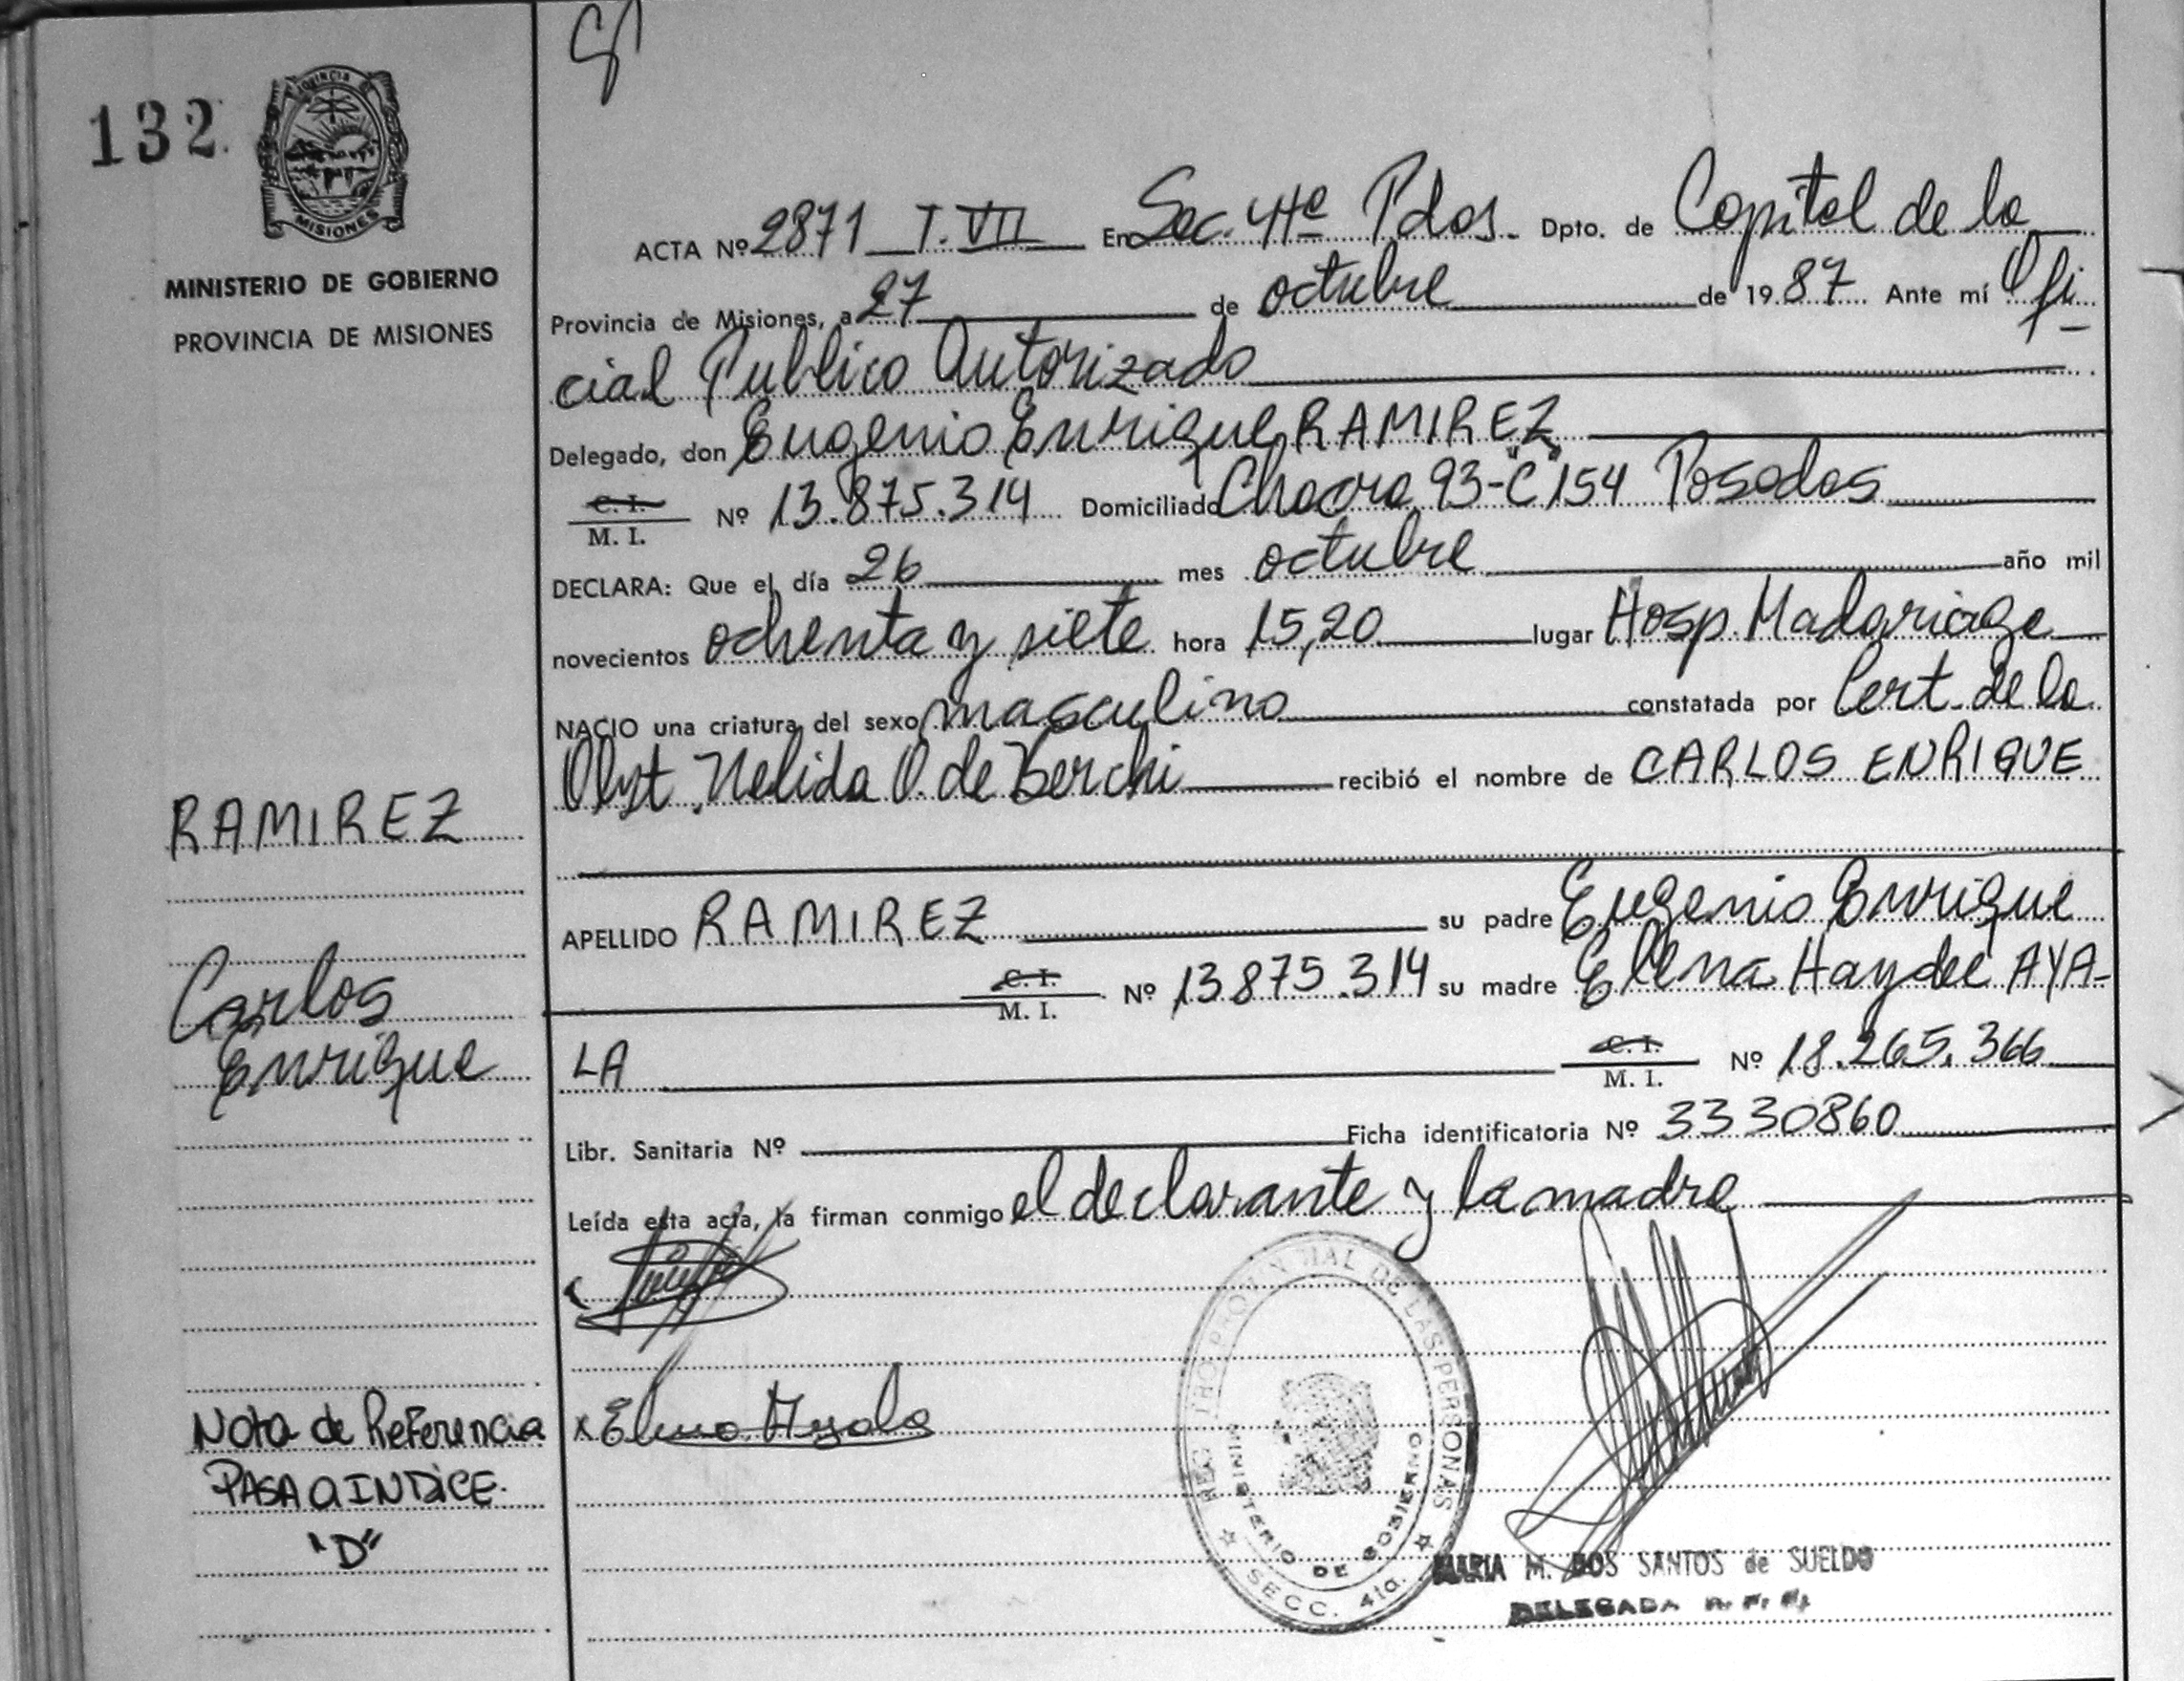 132
PROVINCIA DE
MISIONES
MINISTERIO DE GOBIERNO
PROVINCIA DE MISIONES
ACTA Nº 2871 T. VII En Sec. 4ta Pdas. Dpto. de Capital de la
Provincia de Misiones, a 27 de octubre de 1987 Ante mí Ofi-
cial Publico Autorizado
Delegado, don Eugenio Enrique RAMIREZ
C. I.
M. I. Nº 13.875.314 Domiciliado Chacra 93-"C" 154 Posadas
DECLARA: Que el día 26 mes octubre año mil
novecientos ochenta y siete hora 15,20 lugar Hosp. Madariaga
NACIO una criatura del sexo masculino constatada por Cert. de la
Obst. Nelida O. de Berchi recibió el nombre de CARLOS ENRIQUE
APELLIDO RAMIREZ su padre Eugenio Enrique
C. I.
M. I. Nº 13.875.314 su madre Elena Haydee AYA-
LA C. I.
M. I. Nº 18.265.366
Libr. Sanitaria Nº Ficha identificatoria Nº 3330860
Leída esta acta, la firman conmigo el declarante y la madre
x Elena Ayala
RAMIREZ
Carlos
Enrique
Nota de Referencia
PASA a INDICE
"D"
REG PROVINCIAL DE LAS PERSONAS
MINISTERIO DE GOBIERNO
SECC. 4ta.
MARIA M. DOS SANTOS de SUELDO
DELEGADA